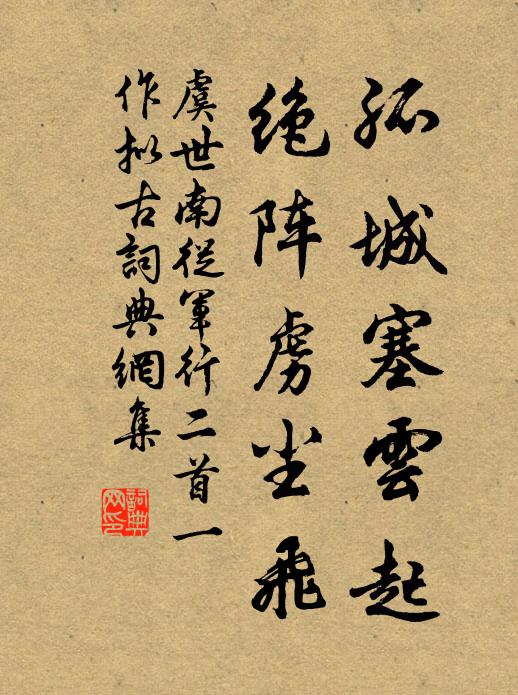 孤城塞雲起
绝阵虏尘飛
虞世南從軍行二首一
作拟古詞典網集
詞典网印